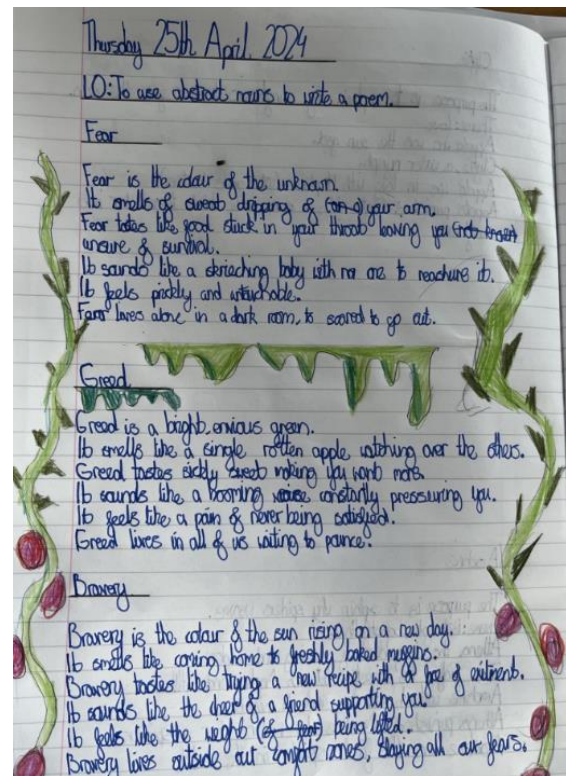 Thursday 25th April. 2024
LO: To use abstract nouns to write a poem.
Fear
Fear is the colour of the unknown.
It smells of sweat dripping of (on a) your arm.
Fear tastes like food stuck in your throat leaving you (not knowen)
unsure of survival.
It sounds like a skrieching baby with no one to reachure it.
It feels prickly and untouchable.
Fear lives alone in a dark room, to scared to go out.
Greed
Greed is a bright envious green.
It smells like a single rotten apple watching over the others.
Greed tastes sickly sweet making you want more.
It sounds like a booming constantly pressuring you.
It feels like a pain of never being satisfied.
Greed lives in all of us waiting to pounce.
Bravery
Bravery is the colour of the sun rising on a new day.
It smells like coming home to freshly baked muffins.
Bravery tastes like trying a new recipe with a of exitment.
It sounds like the cheer of a friend supporting you.
It feels like the weight (of fear) being lifted.
Bravery lives outside out comfort zones, slaying all our fears.